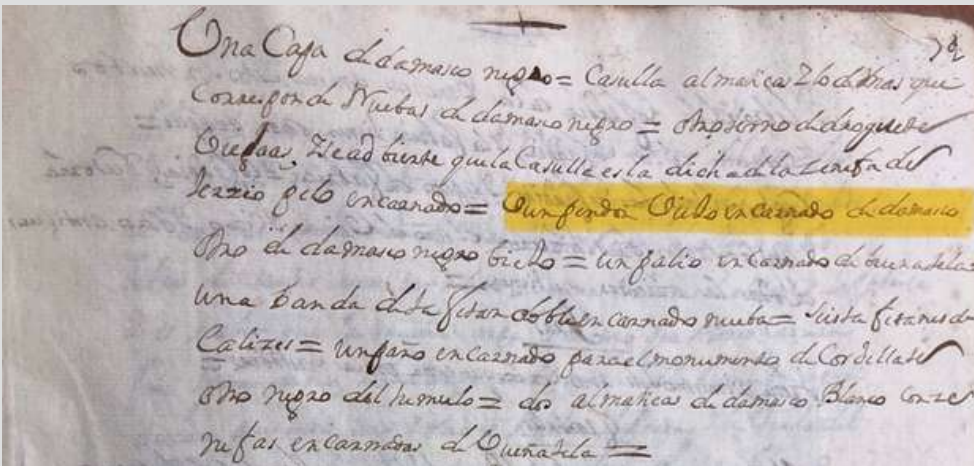 Una Capa de damasco negro = Casulla almaticas Y lo demas que
Corresponde Nuebas de damasco negro = otro terno de droguete
Viejas. Y se adbierte que la Casulla es la dicha de la Zenefa de
Terzio pelo encarnado = Vun pendon Viejo encarnado de damasco
otro de damasco negro biejo = un palio encarnado de buena tela =
una banda de tafetan doble encarnado nueba = tafetanes de
Calizes = un paño encarnado para el monumento de Cordellate
otro negro del tumulo = dos almaticas de damasco Blanco con ze
nefas encarnadas de Buena tela =